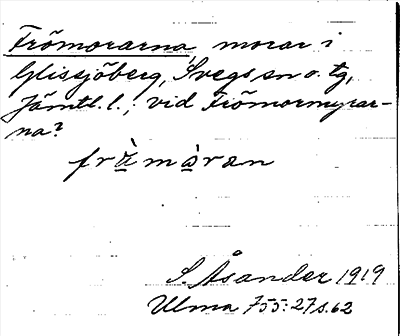 Frömorarna, morar i
Glissjöberg, Svegs sn o. tg,
Jämtl. l.; vid Frömormyrar-
na?
S. Åsander 1919
Ulma 755:27 s. 62